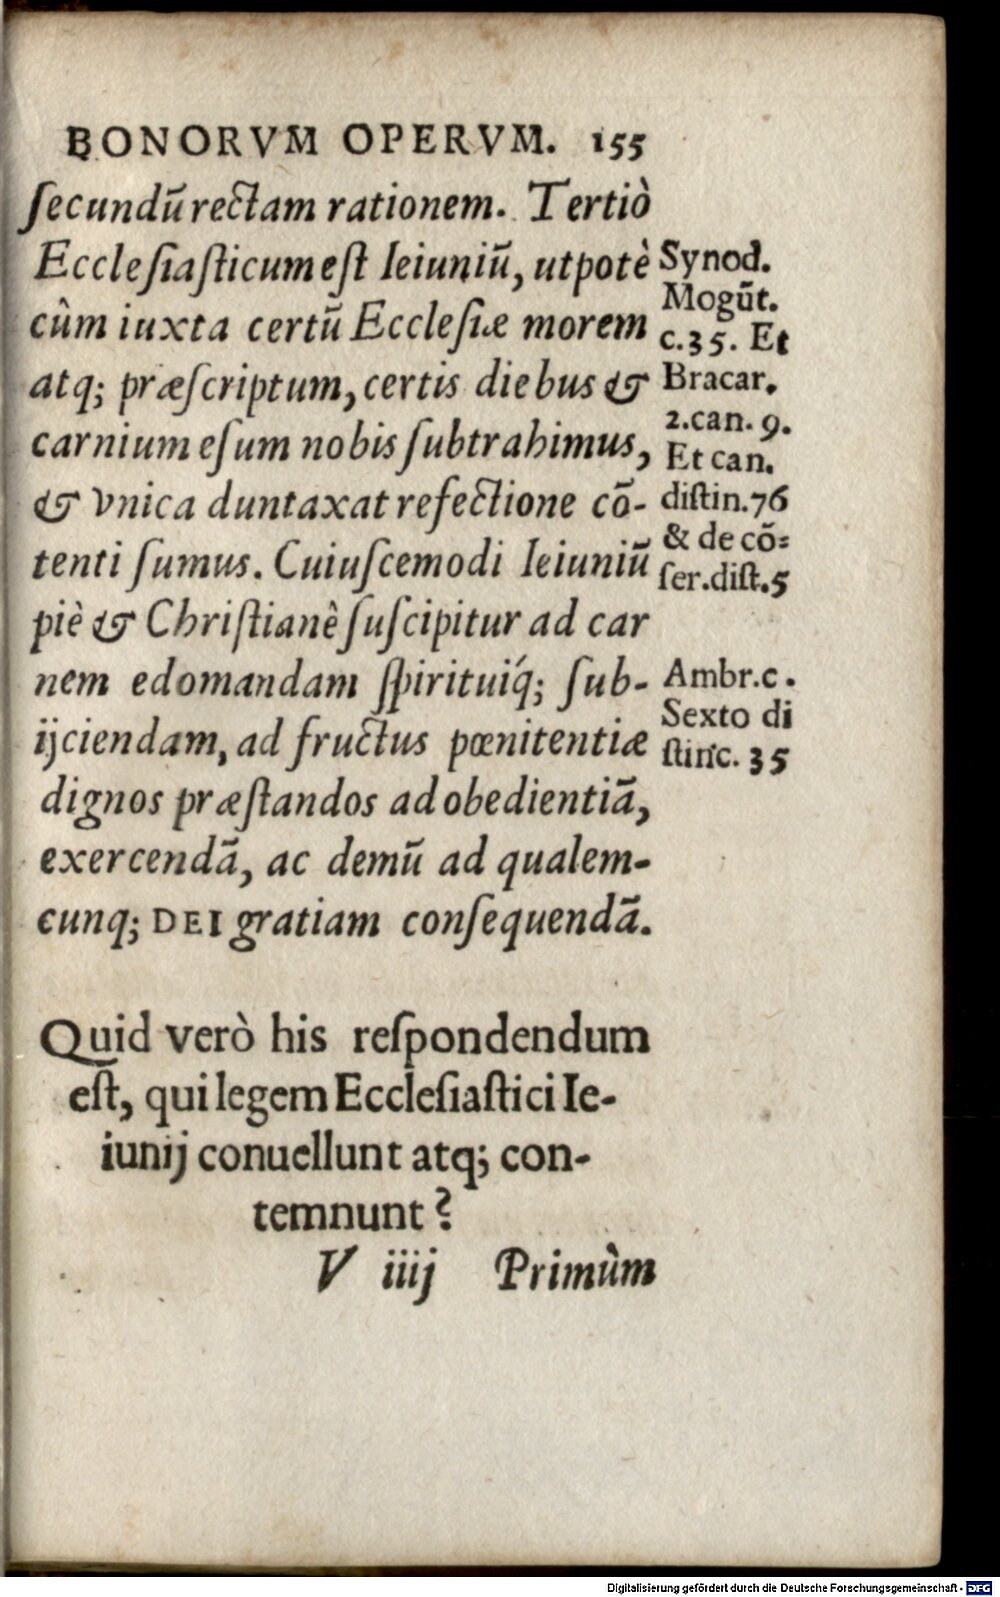 BONORVM OPERVM. 155
ſecundū rectam rationem. Tertiò
Eccleſiaſticum eſt Ieiuniū, utpotè
cùm iuxta certū Eccleſiæ morem
atq; præſcriptum, certis diebus &
carnium eſum nobis ſubtrahimus,
& vnica duntaxat refectione cō-
tenti ſumus. Cuiuſcemodi Ieiuniū
piè & Chriſtianè ſuſcipitur ad car
nem edomandam ſpirituiq́; ſub-
ijciendam, ad fructus pœnitentiæ
dignos præſtandos ad obedientiā,
exercendā, ac demū ad qualem-
cunq; DEI gratiam conſequendā.
Synod.
Mogūt.
c.35. Et
Bracar.
2.can. 9.
Et can.
diſtin.76
& de cō=
ſer.diſt.5
Ambr.c.
Sexto di
ſtinc. 35
Quid verò his reſpondendum
eſt, qui legem Eccleſiaſtici Ie-
iunij conuellunt atq; con-
temnunt?
V iiij Primùm
Digitalisierung gefördert durch die Deutsche Forschungsgemeinschaft - DFG